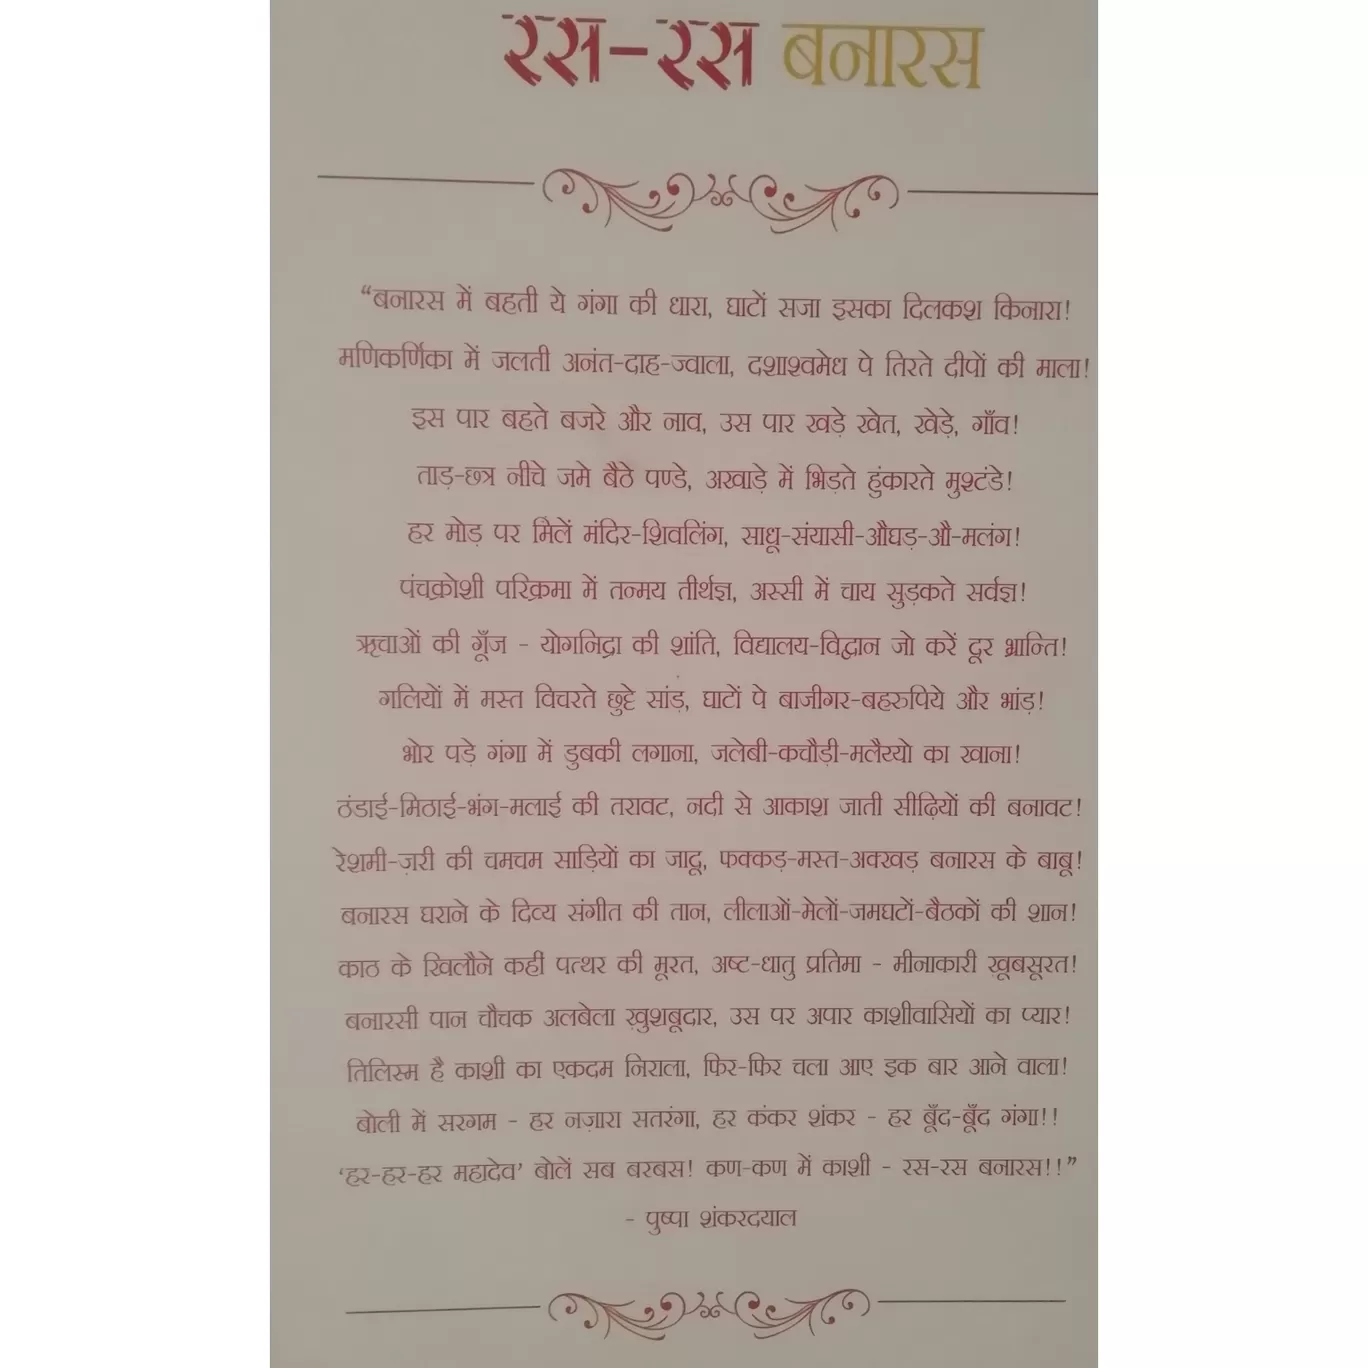 रस-रस बनारस
“बनारस में बहती ये गंगा की धारा, घाटों सजा इसका दिलकश किनारा!
मणिकर्णिका में जलती अनंत-दाह-ज्वाला, दशाश्वमेध पे तिरते दीपों की माला!
इस पार बहते बजरे और नाव, उस पार खड़े खेत, खेड़े, गाँव!
ताड़-छत्र नीचे जमे बैठे पण्डे, अखाड़े में भिड़ते हुंकारते मुश्टंडे!
हर मोड़ पर मिलें मंदिर-शिवलिंग, साधू-संयासी-औघड़-औ-मलंग!
पंचक्रोशी परिक्रमा में तन्मय तीर्थज्ञ, अस्सी में चाय सुड़कते सर्वज्ञ!
ऋचाओं की गूँज - योगनिद्रा की शांति, विद्यालय-विद्वान जो करें दूर भ्रान्ति!
गलियों में मस्त विचरते छुट्टे सांड़, घाटों पे बाजीगर-बहरुपिये और भांड़!
भोर पड़े गंगा में डुबकी लगाना, जलेबी-कचौड़ी-मलैय्यो का खाना!
ठंडाई-मिठाई-भंग-मलाई की तरावट, नदी से आकाश जाती सीढ़ियों की बनावट!
रेशमी-ज़री की चमचम साड़ियों का जादू, फक्कड़-मस्त-अक्खड़ बनारस के बाबू!
बनारस घराने के दिव्य संगीत की तान, लीलाओं-मेलों-जमघटों-बैठकों की शान!
काठ के खिलौने कहीं पत्थर की मूरत, अष्ट-धातु प्रतिमा - मीनाकारी ख़ूबसूरत!
बनारसी पान चौचक अलबेला ख़ुशबूदार, उस पर अपार काशीवासियों का प्यार!
तिलिस्म है काशी का एकदम निराला, फिर-फिर चला आए इक बार आने वाला!
बोली में सरगम - हर नज़ारा सतरंगा, हर कंकर शंकर - हर बूँद-बूँद गंगा!!
‘हर-हर-हर महादेव’ बोलें सब बरबस! कण-कण में काशी - रस-रस बनारस!!”
- पुष्पा शंकरदयाल